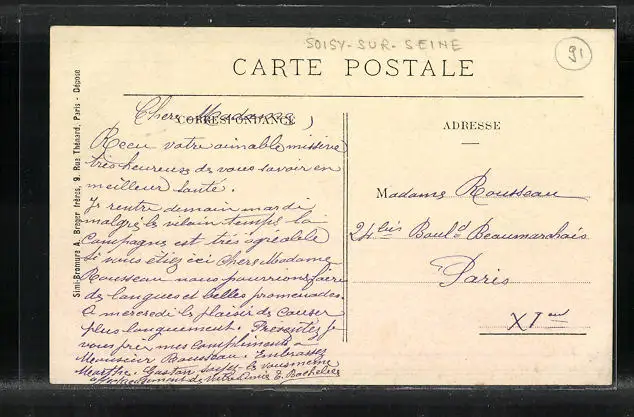 SOISY-SUR-SEINE
91
CARTE POSTALE
CORRESPONDANCE
ADRESSE
Simi-Bromure A. Breger frères, 9, Rue Thénard, Paris - Déposé
Chère Madame,
Reçu votre aimable missive
très heureuse de vous savoir en
meilleur santé.
Je rentre demain mardi
malgré le vilain temps la
Campagne est très agréable
Si vous étiez ici Chère Madame
Rousseau nous pourrions faire
de longues et belles promenades.
A mercredi le plaisir de causer
plus longuement. Présentez je
vous prie mes compliments a
Monsieur Rousseau. Embrassez
Marthe. Gaston
de votre amie E. Bachelier
Madame Rousseau
24 bis Bould Beaumarchais
Paris
XIe